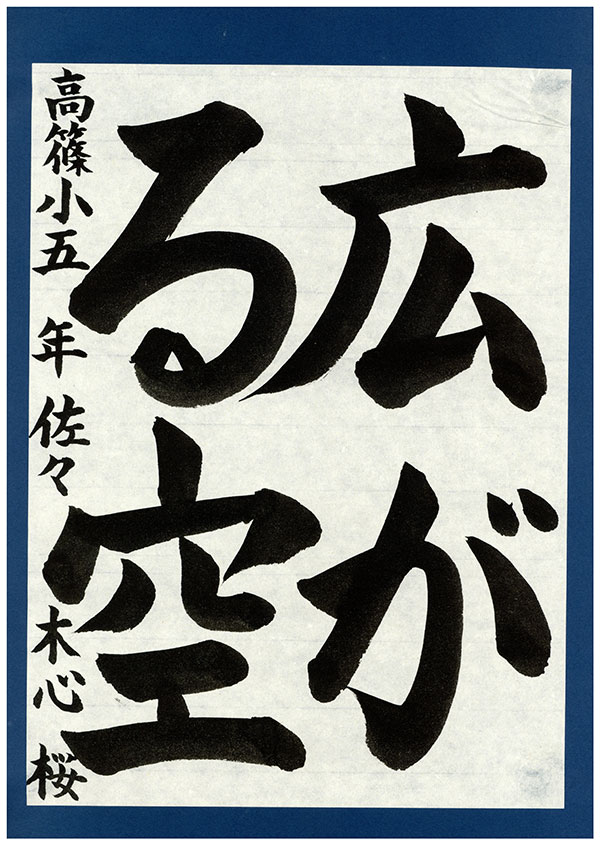 広が
る空
高篠小五年佐々木心桜